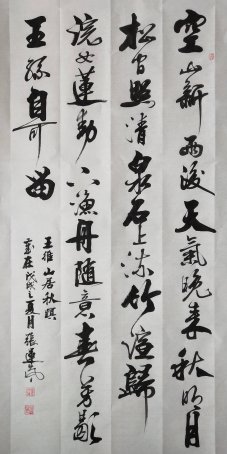 空山新雨後天氣晚來秋明月
松間照清泉石上流竹喧歸
浣女蓮動下漁舟隨意春芳歇
王孫自可留
王維山居秋暝
歲在戊戌之夏月張運成